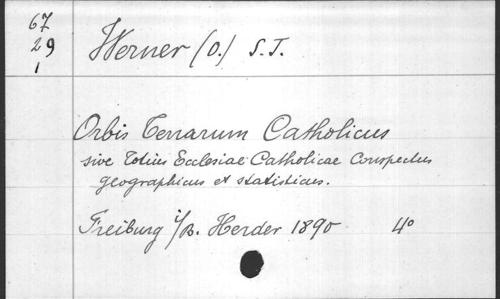 67
29
1
Werner (O.) S.J.
Orbis Terrarum Catholicus
sive Totius Ecclesiae Catholicae Conspectus
geographicus et statisticus.
Freiburg i/B. Herder 1890 4°